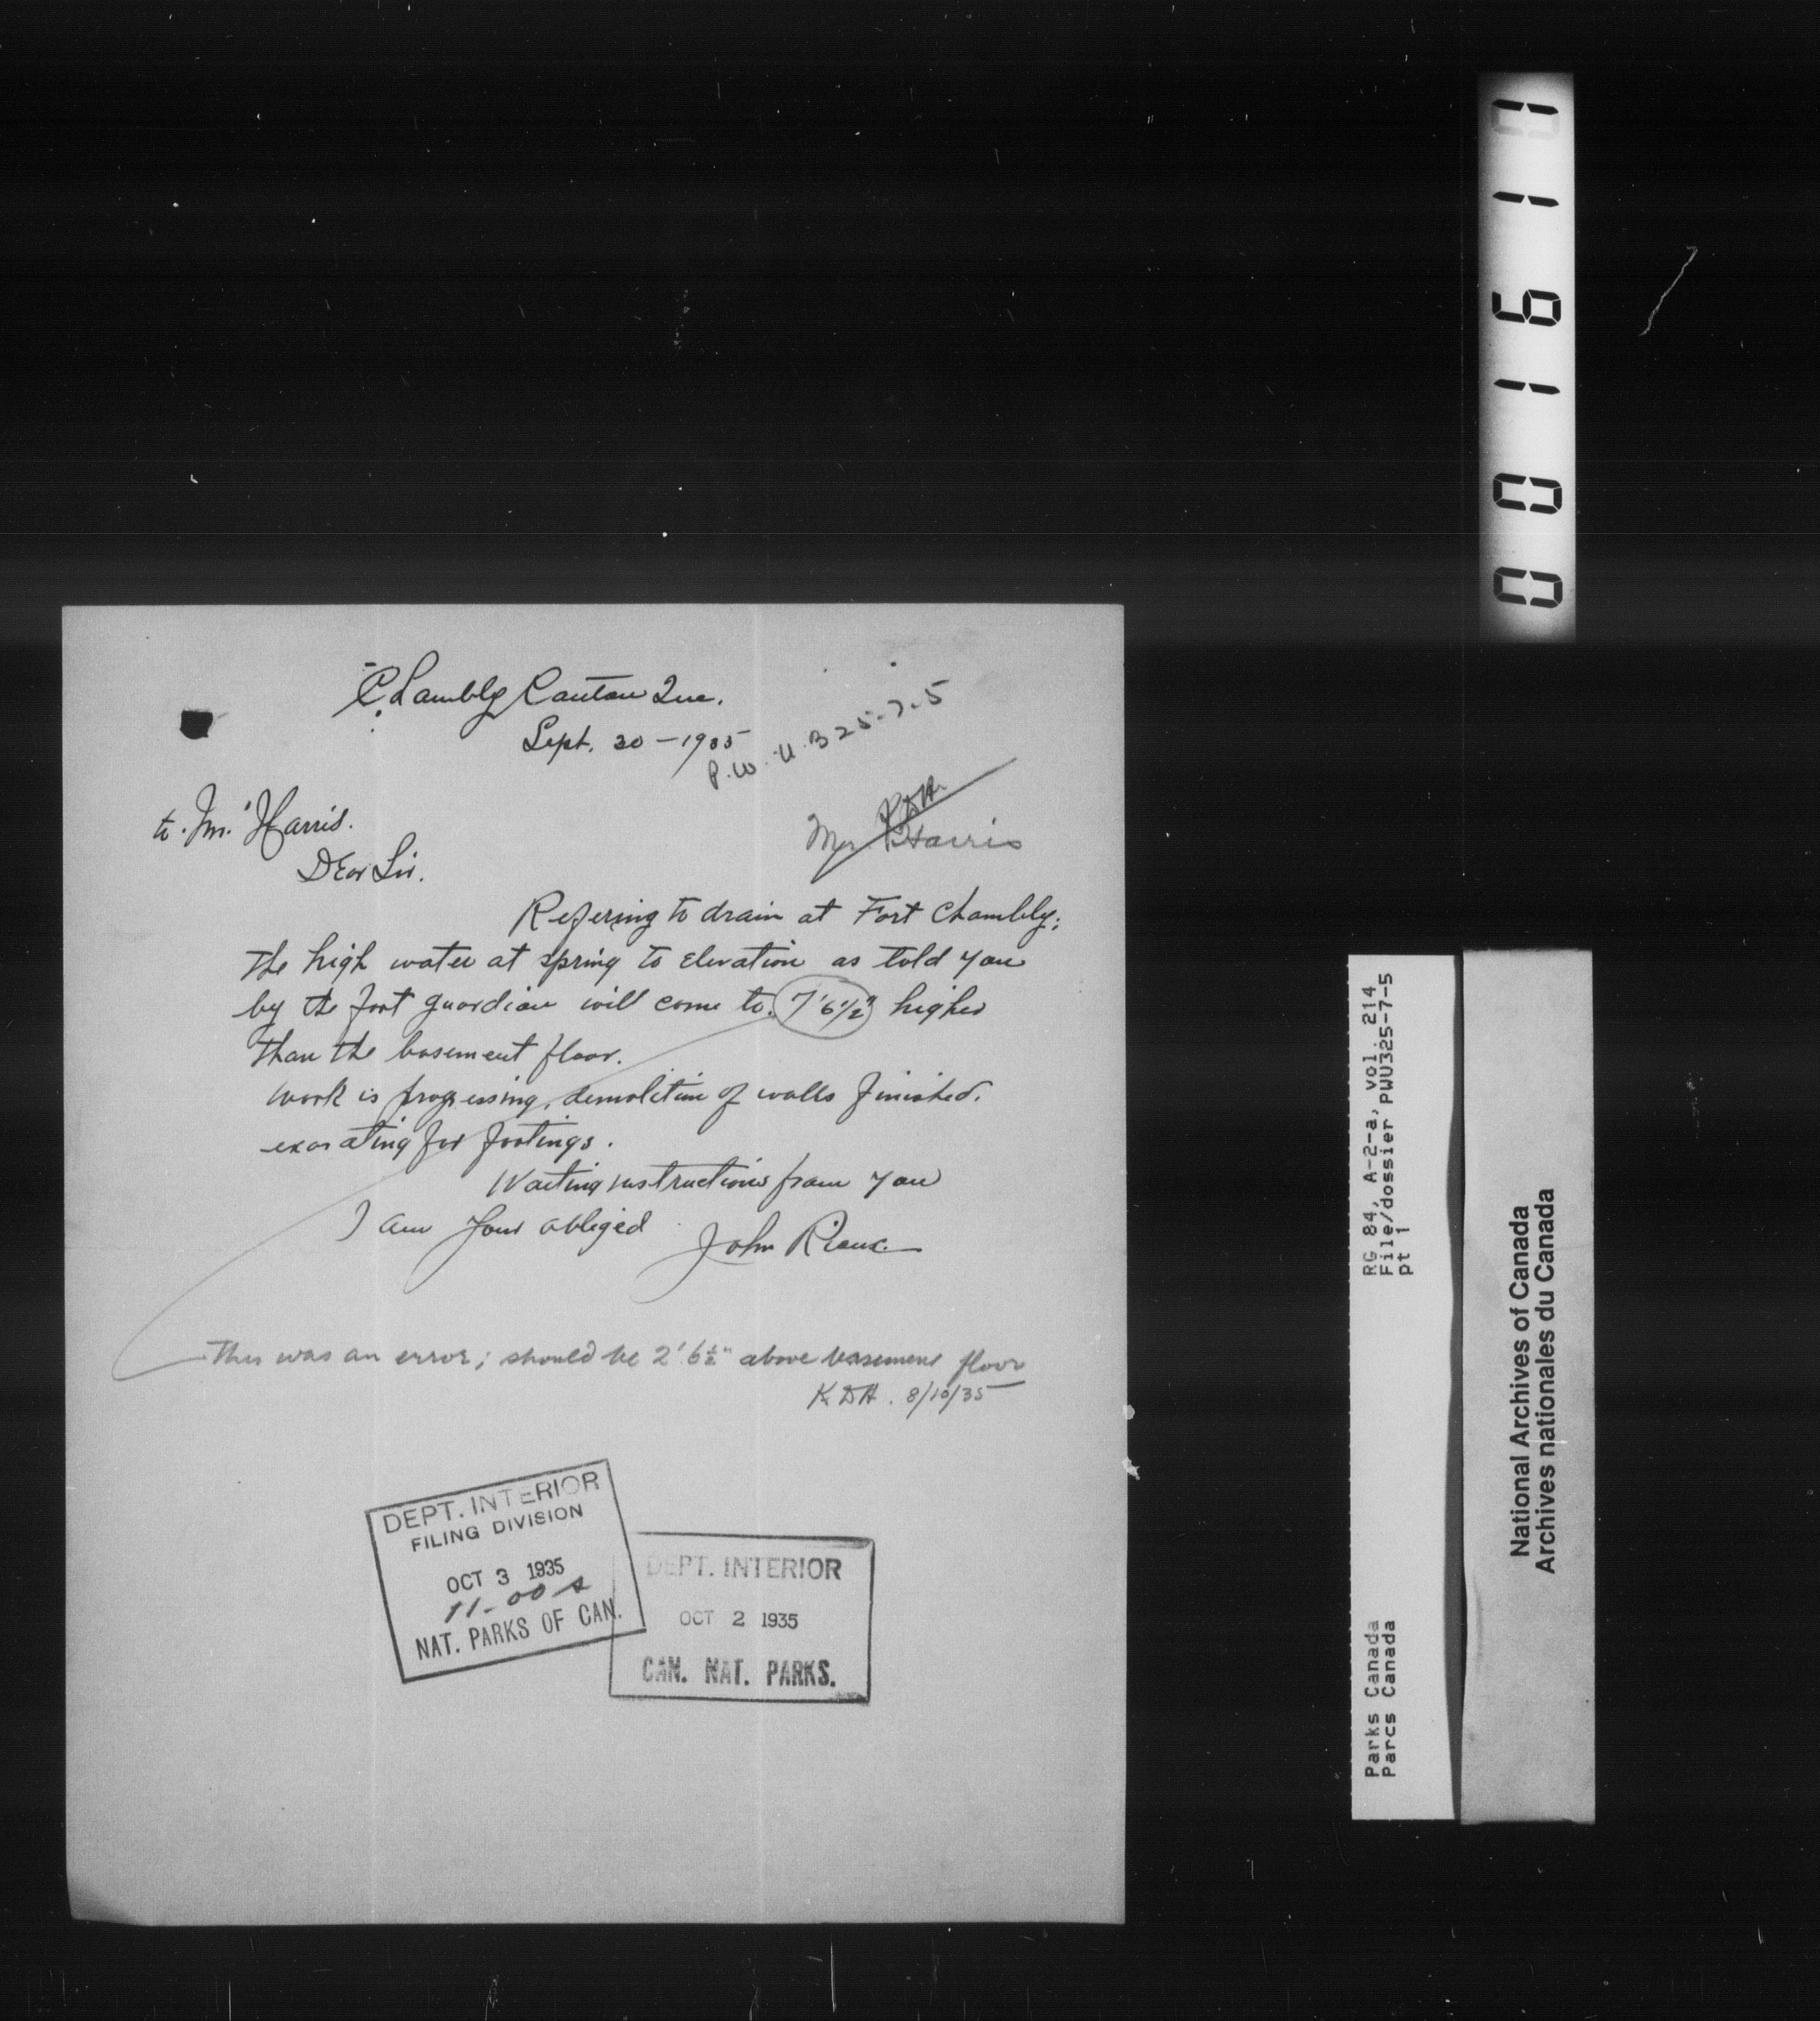 Chambly Canton Que.
Sept. 30 - 1935
P.W.U. 325-7-5
to. Mr. Harris.
KDH
Mr. Harris
DEar Sir.
Refering to drain at Fort Chambly;
The high water at spring to Elevation as told you
by the fort guardian will come to 7'6½" higher
than the basement floor.
Work is progressing, demolition of walls finished.
exavating for footings.
Waiting instructions from you
I am your obliged
John Rioux.
This was an error; should be 2'6½" above basement floor
KDH. 8/10/35
DEPT. INTERIOR
FILING DIVISION
OCT 3 1935
11-00 A
NAT. PARKS OF CAN.
DEPT. INTERIOR
OCT 2 1935
CAN. NAT. PARKS.
001610
RG 84, A-2-a, vol. 214
File/dossier PWU325-7-5
pt 1
Parks Canada
Parcs Canada
National Archives of Canada
Archives nationales du Canada